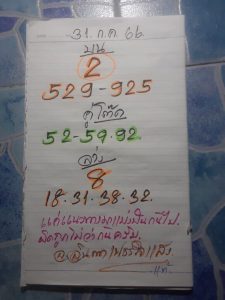 31. ก.ค 66
บน
2
529-925
คู่โต๊ด
52-59-92
ล่าง
8
18.31.38.32.
แค่แนวทางมาแบ่งปันกันไป.
ผิดถูกไม่ว่ากันครับ